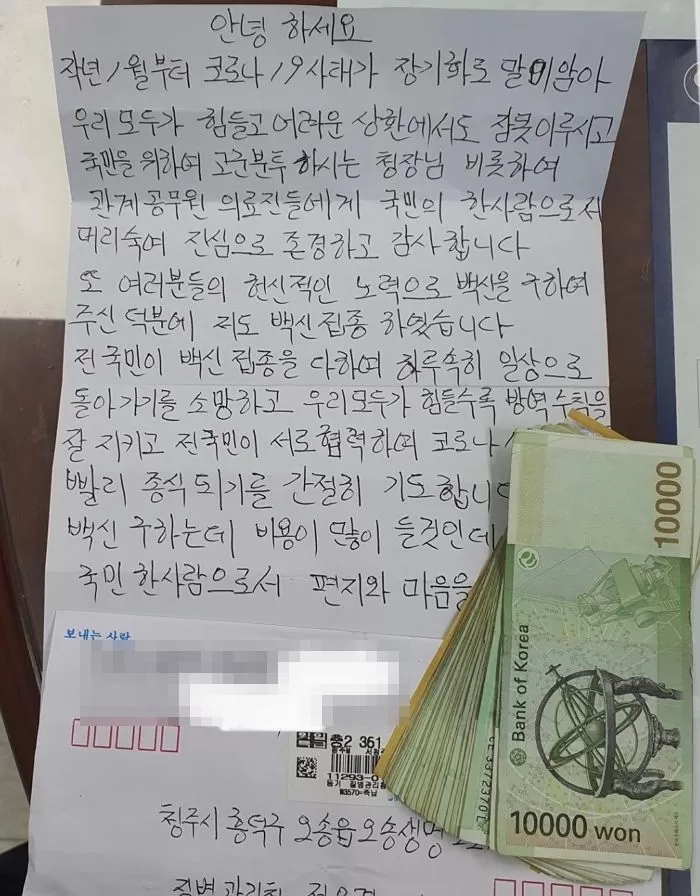 안녕 하세요
작년 1월부터 코로나 19사태가 장기화로 말미암아
우리 모두가 힘들고 어려운 상황에서도 잠못이루시고
국민을 위하여 고군분투 하시는 청장님 비롯하여
관계공무원 의료진들에게 국민의 한사람으로서
머리숙여 진심으로 존경하고 감사합니다
또 여러분들의 헌신적인 노력으로 백신을 구하여
주신 덕분에 저도 백신접종 하였습니다
전국민이 백신 접종을 다하여 하루속히 일상으로
돌아가기를 소망하고 우리모두가 힘들수록 방역수칙을
잘 지키고 전국민이 서로협력하여 코로나
빨리 종식되기를 간절히 기도합니다
백신 구하는데 비용이 많이 들것인데
국민 한사람으로서 편지와 마음을
보내는 사람
익일 충2 361
11293-0
등기 질병관리청
청주시 흥덕구 오송읍 오송생명
10000
Bank of Korea
10000 won